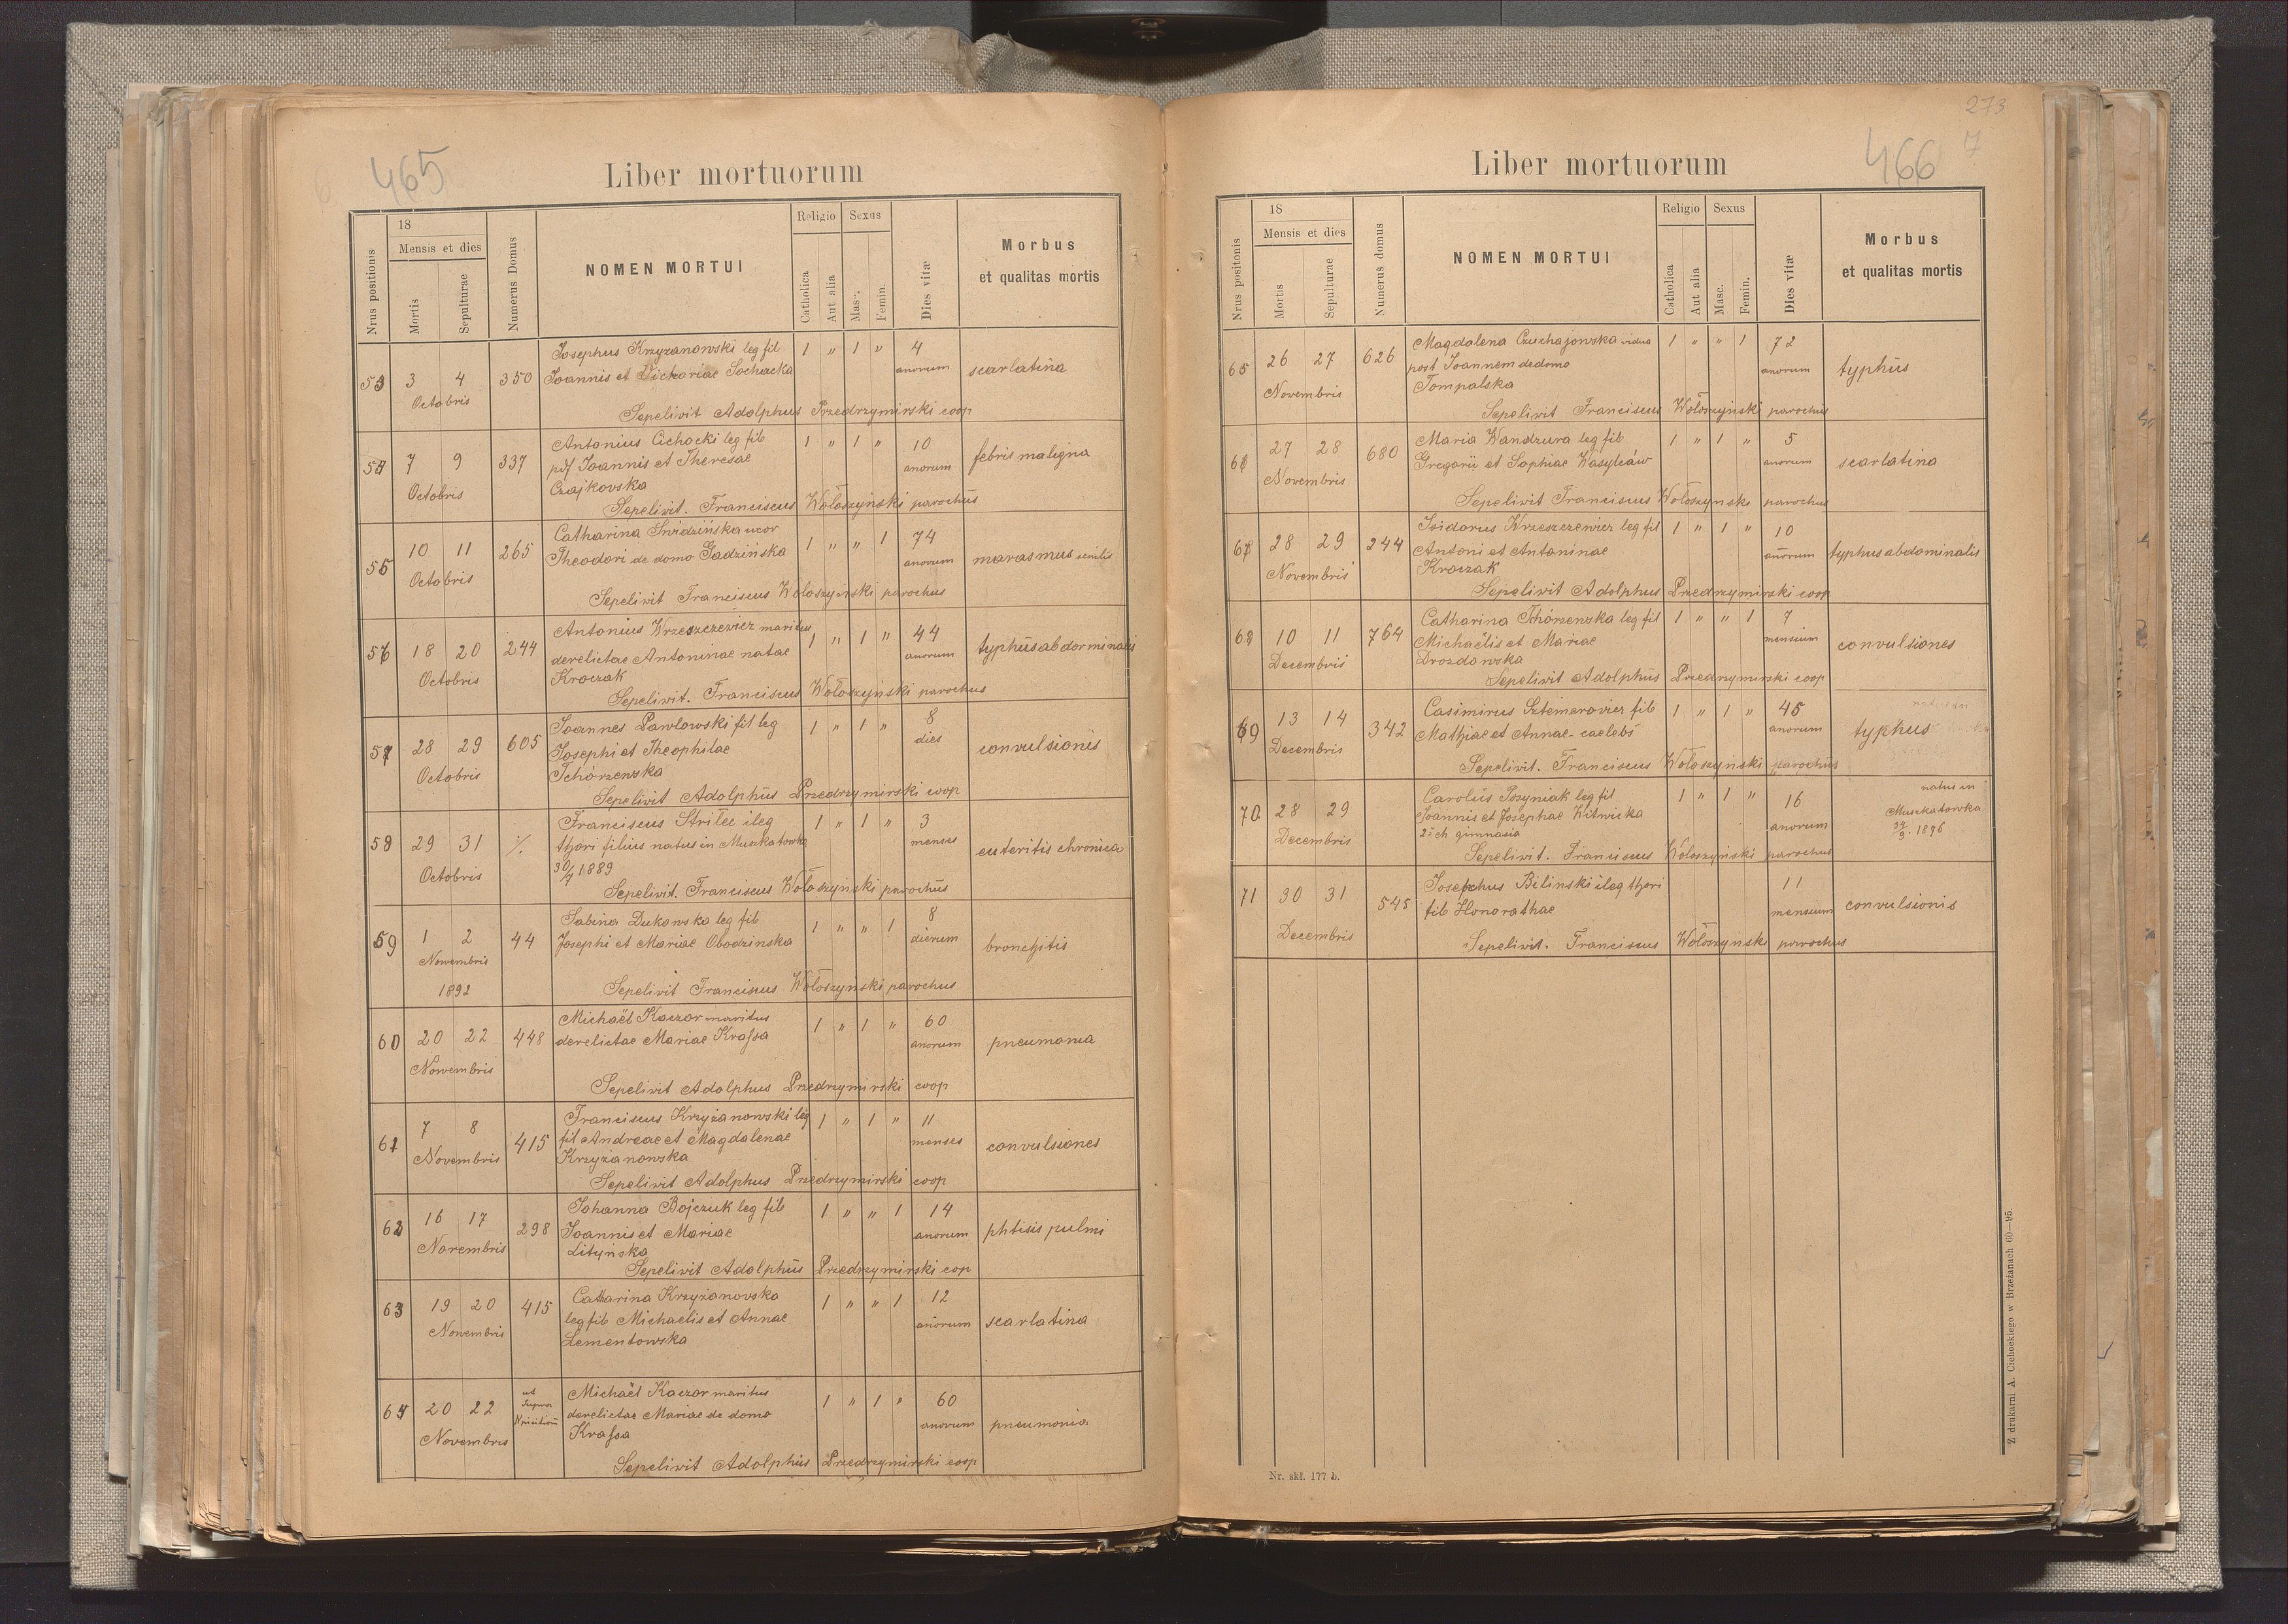 465
Liber mortuorum
Nrus positionis
18
Mensis et dies
Mortis
Sepulturae
Numerus Domus
NOMEN MORTUI
Religio
Catholica
Aut alia
Sexus
Masc.
Femin.
Dies vitæ
Morbus
et qualitas mortis
53 3 4 Octobris 350
Josephus Krzyzanowski leg fil
Joannis et Victoriae Sochacka
1 " 1 " 4 anorum scarlatina
Sepelivit Adolphus Przedrzymirski coop
54 7 9 Octobris 337
Antonius Cichocki leg fil
pdf Joannis et Theresae
Czajkovska
1 " 1 " 10 anorum febris maligna
Sepelivit. Franciscus Wołoszyński parochus
55 10 11 Octobris 265
Catharina Swidzińska uxor
Theodori de domo Gadzińska
1 " " 1 74 anorum marasmus senilis
Sepelivit Franciscus Wołoszyński parochus
56 18 20 Octobris 244
Antonius Wrzeszczewicz maritus
derelictae Antoninae natae
Kroczak
1 " 1 " 44 anorum typhus abdorminalis
Sepelivit. Franciscus Wołoszyński parochus
57 28 29 Octobris 605
Joannes Pawlowski fil leg
Josephi et Theophilae
Tchórzewska
1 " 1 " 8 dies convulsionis
Sepelivit Adolphus Przedrzymirski coop
58 29 31 Octobris ./.
Franciscus Strilec ileg
thori filius natus in Muszkatowka
30/7 1889
1 " 1 " 3 menses enteritis chronica
Sepelivit. Franciscus Wołoszyński parochus
59 1 2 Nowembris 1892 44
Sabina Dukowska leg fil
Josephi et Mariae Obodzinska
1 " " 1 8 dierum bronchitis
Sepelivit Franciscus Wołoszyński parochus
60 20 22 Nowembris 448
Michaël Kaczor maritus
derelictae Mariae Krassa
1 " 1 " 60 anorum pneumonia
Sepelivit Adolphus Przedrzymirski coop
61 7 8 Novembris 415
Franciscus Krzyżanowski leg
fil Andreae et Magdalenae
Krzyżanowska
1 " 1 " 11 menses convulsiones
Sepelivit Adolphus Przedrzymirski coop
62 16 17 Novembris 298
Johanna Bojczuk leg fil
Joannis et Mariae
Lityńska
1 " " 1 14 anorum phtisis pulmi
Sepelivit Adolphus Przedrzymirski cop
63 19 20 Nowembris 415
Catharina Krzyżanovska
leg fil Michaelis et Annae
Lementowska
1 " " 1 12 anorum scarlatina
64 20 22 Novembris ut supra
Michaël Kaczor maritus
derelictae Mariae de domo
Krassa
1 " 1 " 60 anorum pneumonia
Sepelivit Adolphus Przedrzymirski coop
273
7
466
Liber mortuorum
Nrus positonis
18
Mensis et dies
Mortis
Sepulturae
Numerus domus
NOMEN MORTUI
Religio
Catholica
Aut alia
Sexus
Masc.
Femin.
Dies vitæ
Morbus
et qualitas mortis
65 26 27 Novembris 626
Magdalena Czuchajowska vidua
post Joannem de domo
Tompalska
1 " " 1 72 anorum typhus
Sepelivit Franciscus Wołoszyński parochus
66 27 28 Novembris 680
Maria Wandzura leg fil
Gregorii et Sophiae Wasylców
1 " 1 " 5 anorum scarlatina
Sepelivit Franciscus Wołoszynski parochus
67 28 29 Novembris 244
Isidorus Wrzeszczewicz leg fil
Antoni et Antoninae
Kroczak
1 " 1 " 10 anorum typhus abdominalis
Sepelivit Adolphus Przedrzymirski coop
68 10 11 Decembris 764
Catharina Tchórzewska leg fil
Michaëlis et Mariae
Drozdowska
1 " " 1 7 mensium convulsiones
Sepelivit Adolphus Przedrzymirski coop
69 13 14 Decembris 342
Casimirus Sztemerovicz fil
Mathiae et Annae - caelebs
1 " 1 " 45 anorum typhus
Sepelivit. Franciscus Wołoszyński parochus
70 28 29 Decembris
Carolus Pozyniak leg fil
Joannis et Josephae Witwicka
2 ich gimnasia
1 " 1 " 16 anorum
natus in
Muszkatowka
9. 1876
Sepelivit. Franciscus Wołoszyński parochus
71 30 31 Decembris 545
Josephus Bilinski ileg thori
fil Honorathae
11 mensium convulsionis
Sepelivit. Franciscus Wołoszyński parochus
Nr. skł. 177 b.
Z drukarni A. Cichockiego w Brzeżanach 60—95.